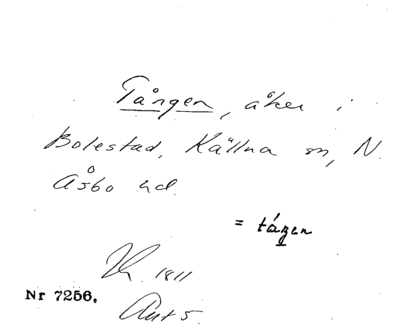 Tången, åker i
Bolestad, Källna sn, N.
Åsbo hd.
= tágen
1811
Nr 7256.
Ant 5.